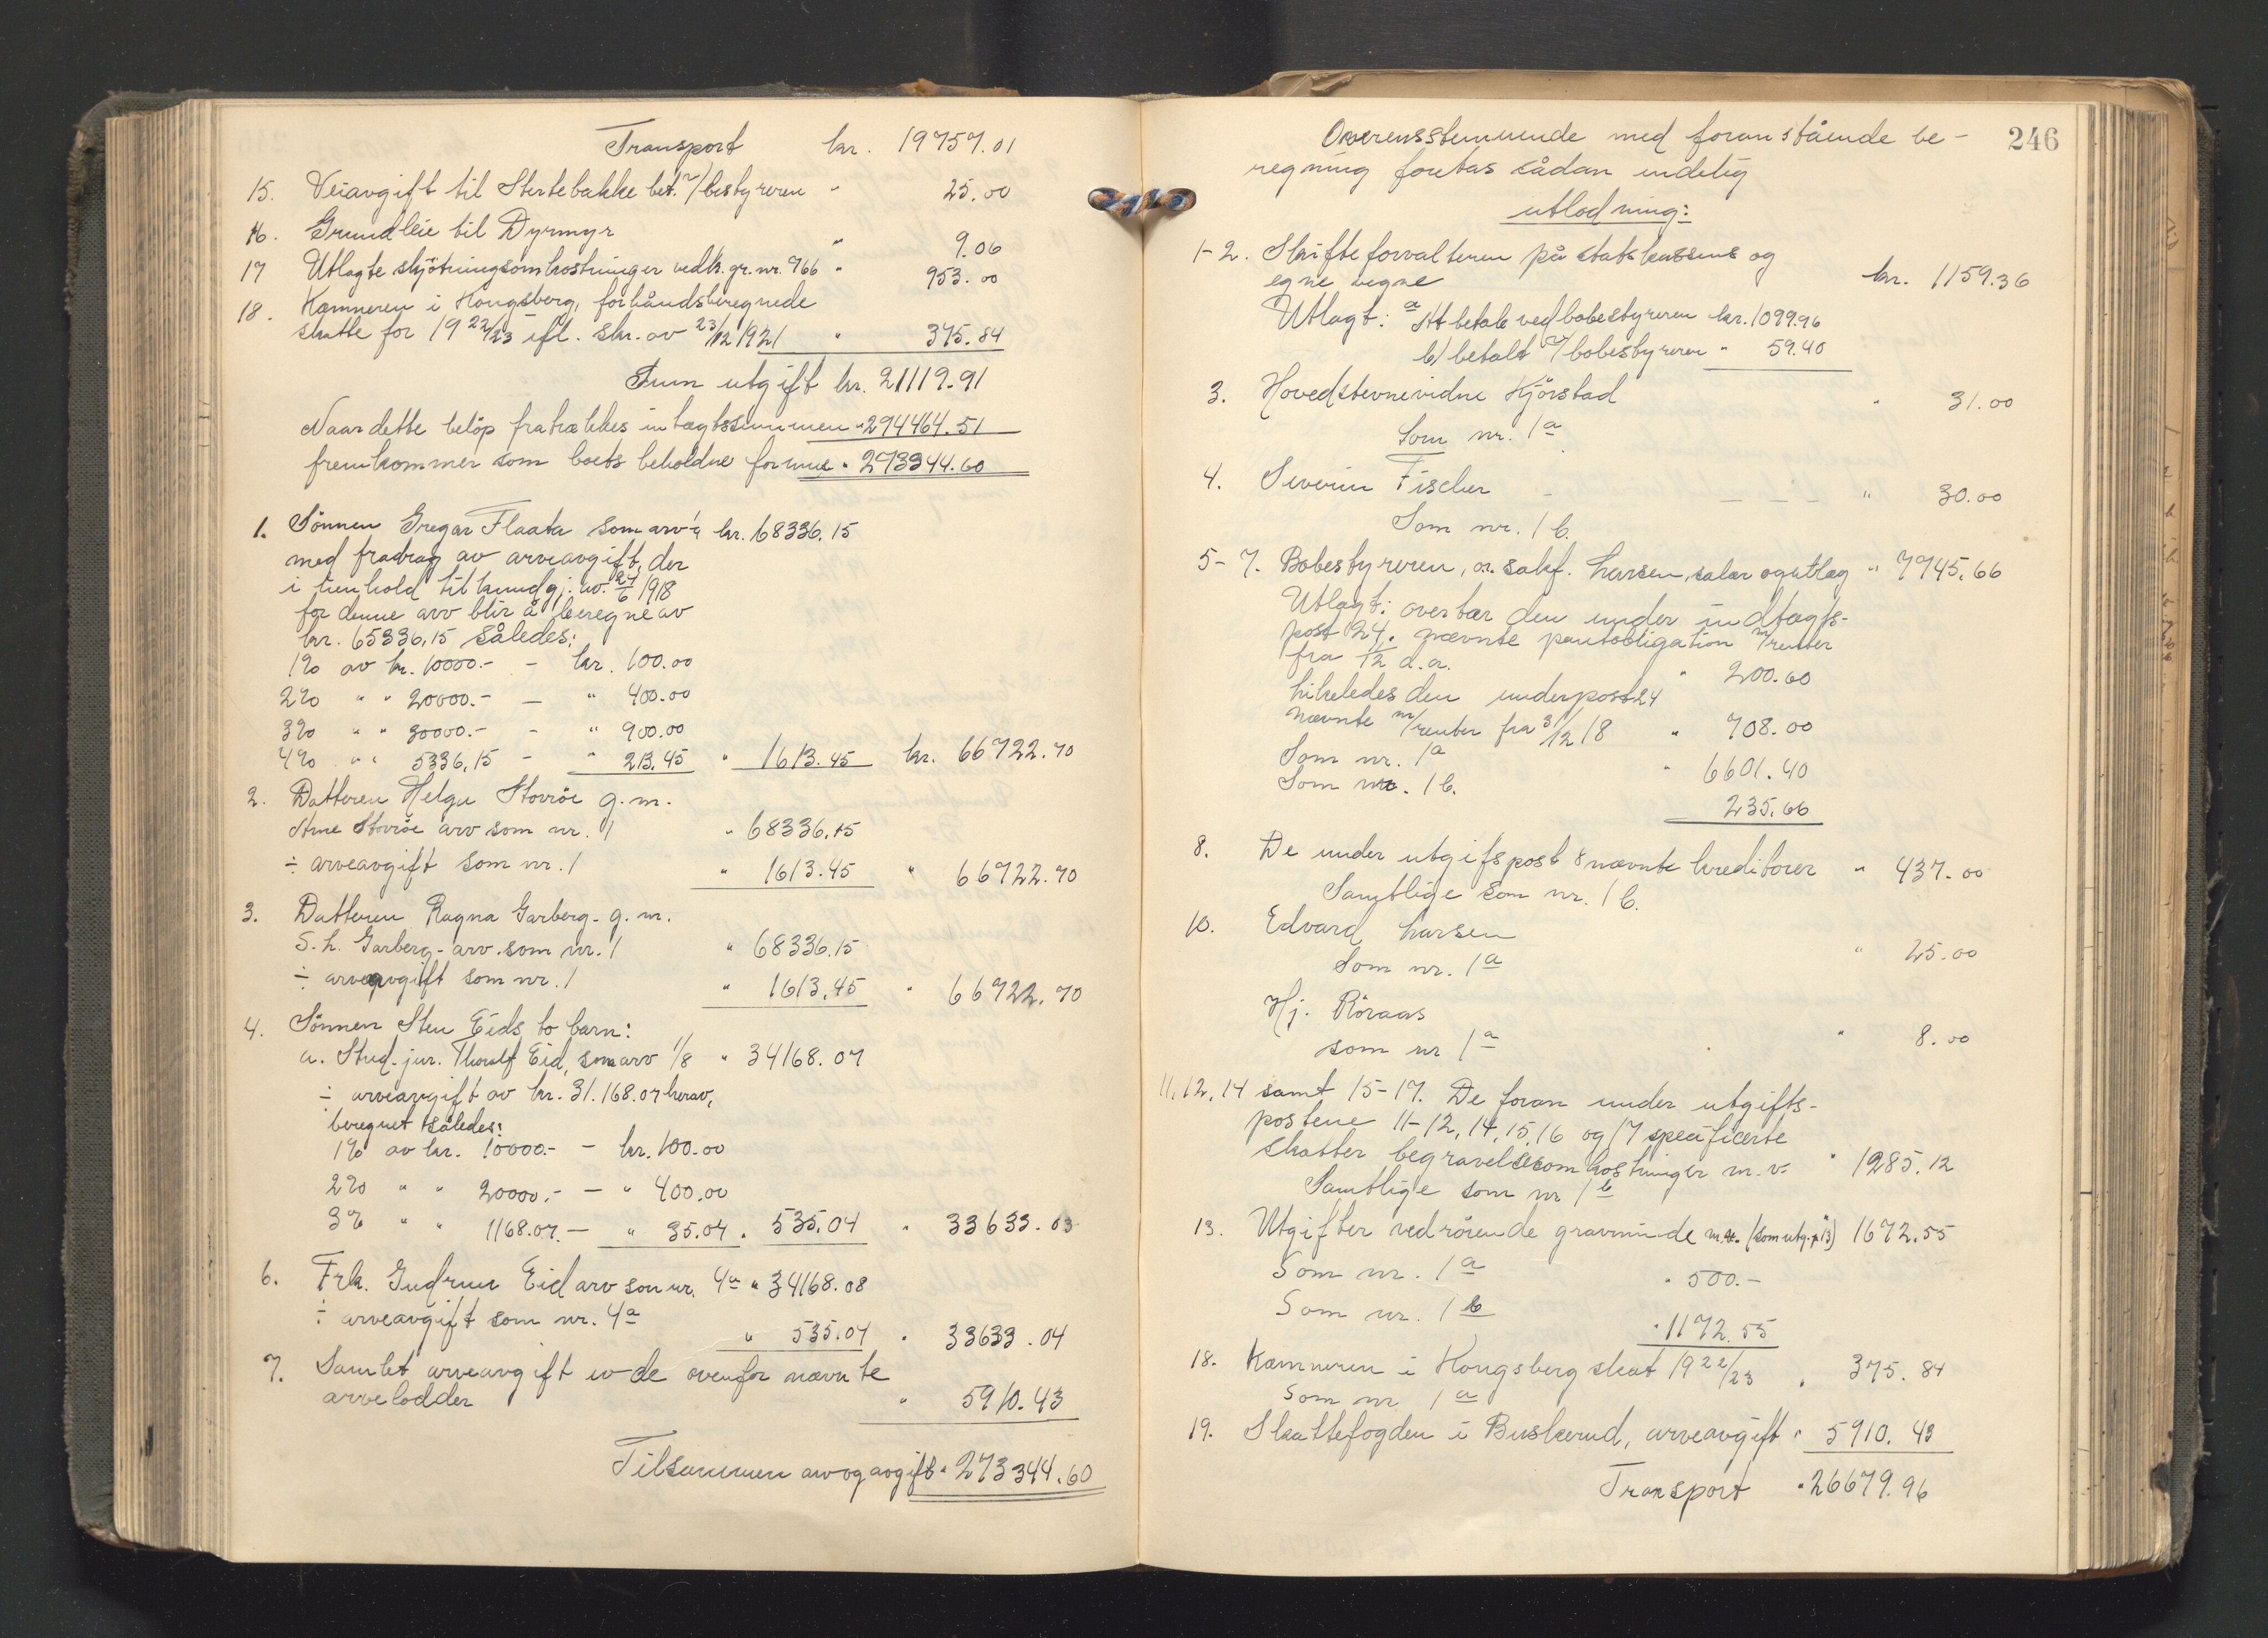 Transport kr. 19757.01
15. Veiavgift til Stertebakke bet. v/bestyreren " 25.00
16. Grundleie til Dyrmyr " 9.06
17 Utlagte skjötningsomkostninger vedk. gr. nr. 766 " 953.00
18. Kæmneren i Kongsberg, forhåndsberegnede
skatte for 1922/23 ifl. skr. av 23/12 1921 " 375.84
Sum utgift kr. 21119.91
Naar dette belöp fratrækkes indtægtssummen " 294464.51
fremkommer som boets beholdne formue " 273344.60
1. Sönnen Gregar Flaata som arv ¼ kr. 68336.15
med fradrag av arveavgift, der
i henhold til kundgj. av 24/6 1918
for denne arv blir å beregne av
kr. 65336,15 således:
1% av kr. 10000.- - kr. 100.00
2% " " 20000.- - " 400.00
3% " " 30000.- - " 900.00
4% " " 5336,15 - " 213.45 " 1613.45 kr. 66722.70
2. Datteren Helga Storöe g.m.
Arne Storöe arv som nr. 1 " 68336.15
÷ arveavgift som nr. 1 " 1613.45 " 66722.70
3. Datteren Ragna Garberg - g. m.
S. L. Garberg - arv som nr. 1 " 68336.15
÷ arveavgift som nr. 1 " 1613.45 " 66722.70
4. Sönnen Sten Eids to barn:
a. Stud. jur. Thoralf Eid, som arv 1/8 " 34168.07
÷ arveavgift av kr. 31.168.07 herav,
beregnet således:
1% av kr. 10000.- - kr. 100.00
2% " " 20000.- - " 400.00
3% " " 1168.07.- " 35.04 " 535.04 " 33633.03
6. Frk. Gudrun Eid arv som nr. 4a " 34168.08
÷ arveavgift som nr. 4a " 535.04 " 33633.04
7. Samlet arveavgift av de ovenfor nævnte
arvelodder " 5910.43
Tilsammen arv og avgift " 273344.60
246
Overensstemmende med foranstående be-
regning foretas sådan endelig
utlodning:
1-2. Skifteforvalteren på statskassens og
egne vegne kr. 1159.36
Utlagt: a At betale ved bobestyreren kr. 1099.96
b) betalt v/ bobestyreren " 59.40
3. Hovedstevnevidne Kjörstad " 31.00
Som nr. 1a
4. Severin Fischer - - - - " 30.00
Som nr. 1 b.
5-7. Bobestyreren, o. sakf. Larsen, salær og utlæg " 7745.66
Utlagt: overtar den under indtægts-
post 24. nævnte pantobligation m/renter
fra 1/12 d.a. " 200.60
Likeledes den under post 24
nævnte m/renter fra 3/12 18 " 708.00
Som nr. 1a " 6601.40
Som nr. 1 b. 235.66
8. De under utgifspost 8 nævnte kreditorer " 437.00
Samtlige som nr. 1 b.
10. Edvard Larsen " 25.00
Som nr. 1a
Hj. Röraas " 8.00
som nr 1a
11, 12, 14 samt 15-17. De foran under utgifts-
postene 11-12, 14, 15, 16 og 17 specificerte
skatter begravelsesomkostninger m. v. " 1285.12
Samtlige som nr 1b
13. Utgifter vedrörende gravminde m.v. (som utg. p. 13) " 1672.55
Som nr. 1a " 500.-
Som nr. 1 b " 1172.55
18. Kæmneren i Kongsberg skat 1922/23 " 375.84
Som nr. 1a
19. Skattefogden i Buskerud, arveavgift " 5910.43
Transport " 26679.96